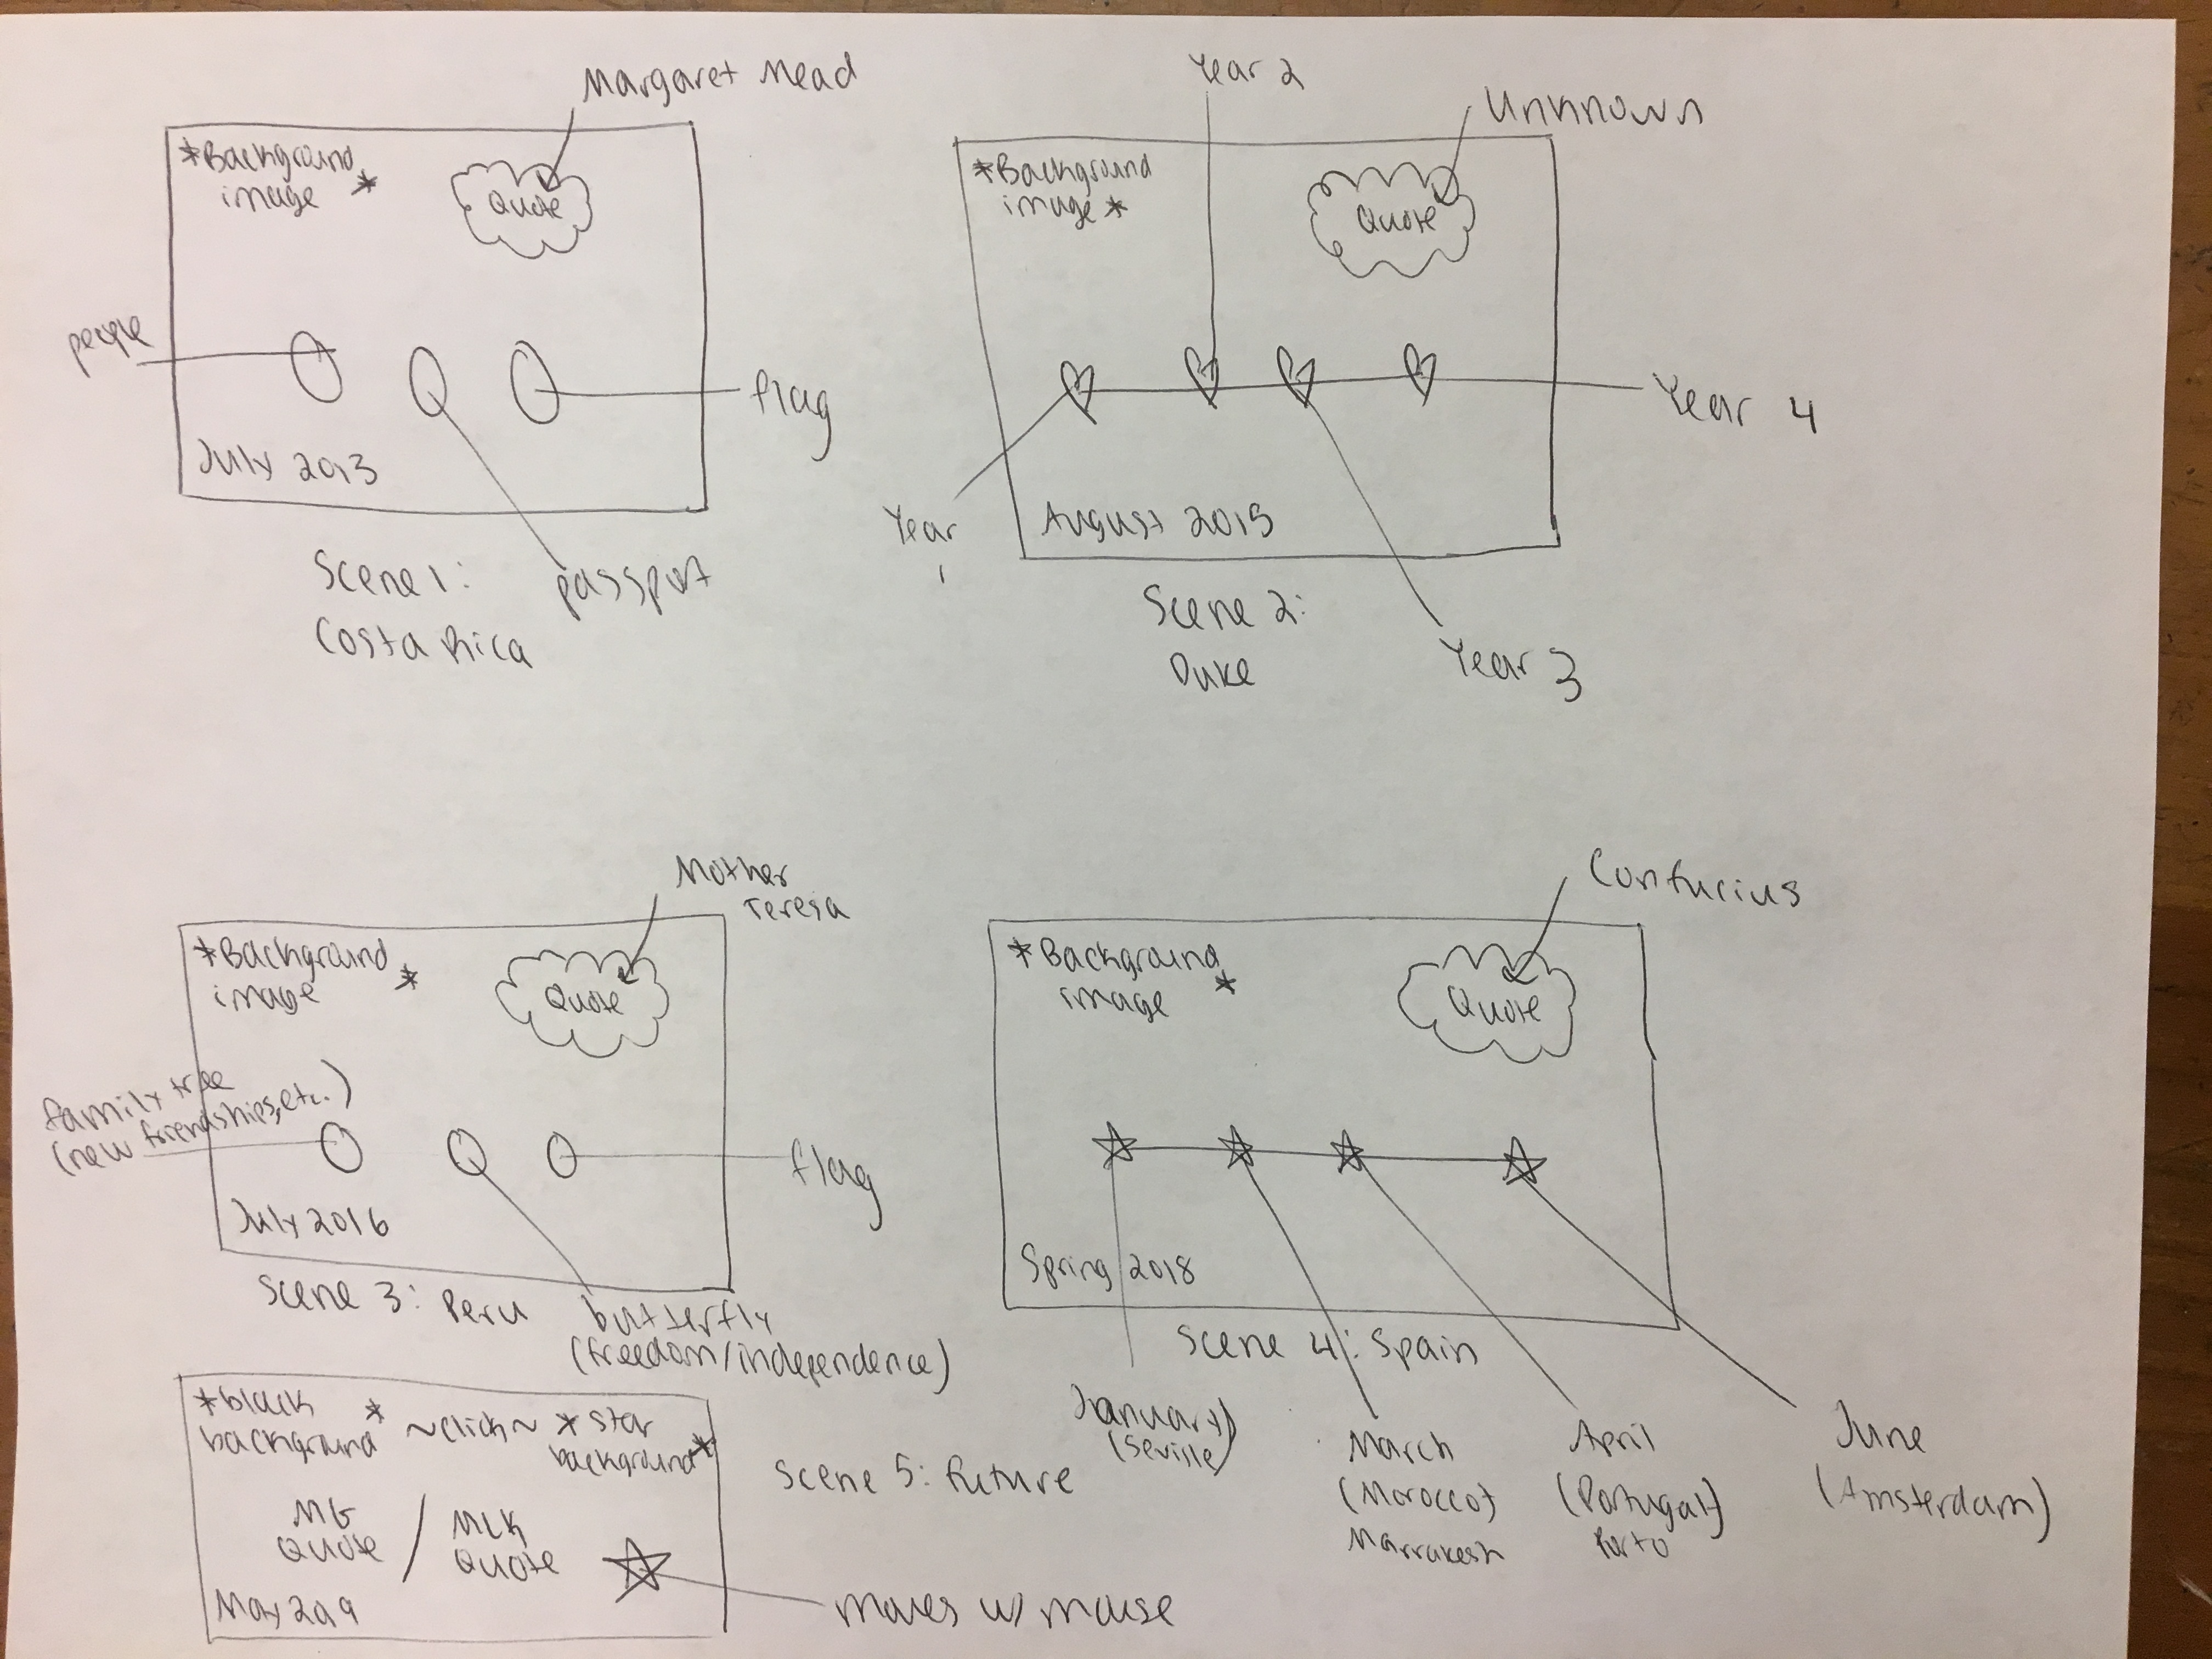 Margaret Mead
*Background
image *
Quote
people
flag
July 2013
Scene 1:
Costa Rica
passport
Year 2
Unknown
*Background
image *
Quote
Year 4
Year
1
August 2015
Scene 2:
Duke
Year 3
Mother
Teresa
*Background
image *
Quote
family tree
(new friendships, etc.)
flag
July 2016
Scene 3: Peru
butterfly
(freedom/independence)
Confucius
*Background
image *
Quote
Spring 2018
Scene 4: Spain
January
(Seville)
March
(Morocco)
Marrakesh
April
(Portugal)
Porto
June
(Amsterdam)
*black
background* ~click~ *star
background*
MG
Quote / MLK
Quote
May 2019
Scene 5: Future
moves w/ mouse